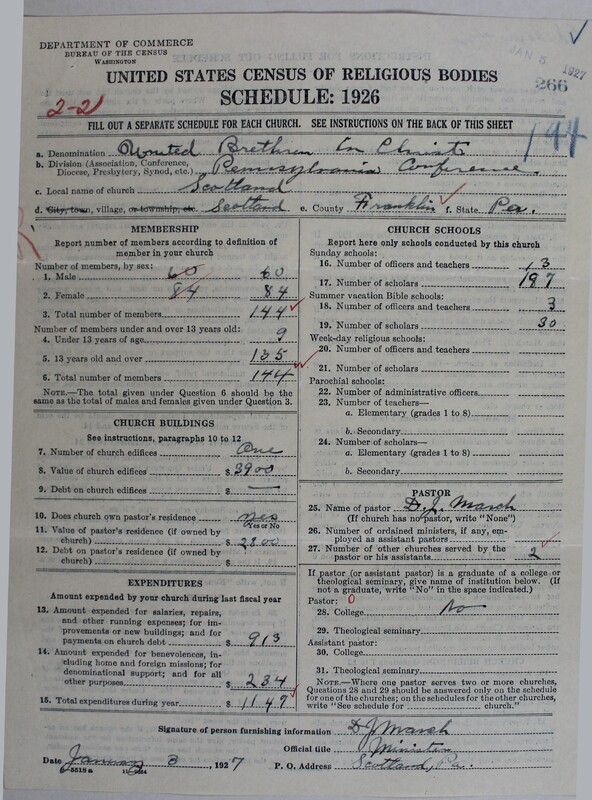 DEPARTMENT OF COMMERCE
BUREAU OF THE CENSUS
WASHINGTON
JAN 5 1927
266
UNITED STATES CENSUS OF RELIGIOUS BODIES
SCHEDULE: 1926
2-21
FILL OUT A SEPARATE SCHEDULE FOR EACH CHURCH. SEE INSTRUCTIONS ON THE BACK OF THIS SHEET
144
a. Denomination United Brethren In Christ
b. Division (Association, Conference, Diocese, Presbytery, Synod, etc.) Pennsylvania Conference
c. Local name of church Scotland
d. City, town, village, or township, etc. Scotland e. County Franklin f. State Pa.
MEMBERSHIP
Report number of members according to definition of
member in your church
Number of members, by sex:
1. Male 60 60
2. Female 84 84
3. Total number of members 144
Number of members under and over 13 years old:
4. Under 13 years of age 9
5. 13 years old and over 135
6. Total number of members 144
NOTE.—The total given under Question 6 should be the
same as the total of males and females given under Question 3.
CHURCH BUILDINGS
See instructions, paragraphs 10 to 12
7. Number of church edifices One
8. Value of church edifices $3900
9. Debt on church edifices $ —
10. Does church own pastor's residence yes
(Yes or No)
11. Value of pastor's residence (if owned by
church) $2800
12. Debt on pastor's residence (if owned by
church) $
EXPENDITURES
Amount expended by your church during last fiscal year
13. Amount expended for salaries, repairs,
and other running expenses; for im-
provements or new buildings; and for
payments on church debt $ 913
14. Amount expended for benevolences, in-
cluding home and foreign missions; for
denominational support; and for all
other purposes $ 234
15. Total expenditures during year $1147
CHURCH SCHOOLS
Report here only schools conducted by this church
Sunday schools:
16. Number of officers and teachers 13
17. Number of scholars 197
Summer vacation Bible schools:
18. Number of officers and teachers 3
19. Number of scholars 30
Week-day religious schools:
20. Number of officers and teachers
21. Number of scholars
Parochial schools:
22. Number of administrative officers
23. Number of teachers—
a. Elementary (grades 1 to 8)
b. Secondary
24. Number of scholars—
a. Elementary (grades 1 to 8)
b. Secondary
PASTOR
25. Name of pastor D. J. March
(If church has no pastor, write "None")
26. Number of ordained ministers, if any, em-
ployed as assistant pastors
27. Number of other churches served by the
pastor or his assistants 2
If pastor (or assistant pastor) is a graduate of a college or
theological seminary, give name of institution below. (If
not a graduate, write "No" in the space indicated.)
Pastor: 0
28. College No
29. Theological seminary
Assistant pastor:
30. College
31. Theological seminary
NOTE.—Where one pastor serves two or more churches,
Questions 28 and 29 should be answered only on the schedule
for one of the churches; on the schedules for the other churches,
write "See schedule for church."
Signature of person furnishing information D J March
Official title Minister
Date January 3, 1927 P. O. Address Scotland, Pa.